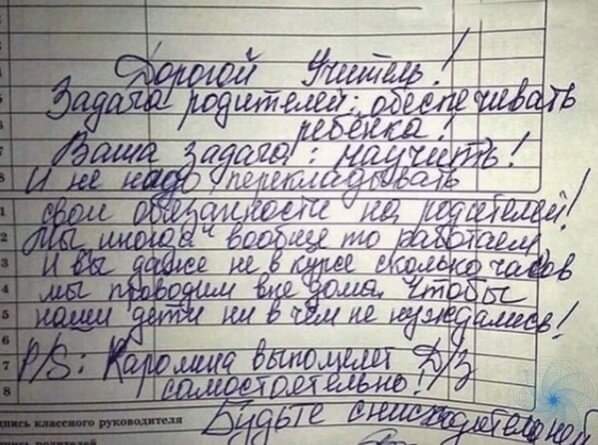 Дорогой Учитель!
Задача родителей: обеспечивать
ребёнка!
Ваша задача: научить!
И не надо перекладывать
свои обязанности на родителей!
Мы иногда вообще то работаем
и вы даже не в курсе сколько часов
мы проводим вне дома, чтобы
наши дети ни в чём не нуждались!
P/S: Каролина выполняет Д/з
самостоятельно!
Будьте снисходительной
дпись классного руководителя
дпись родителей